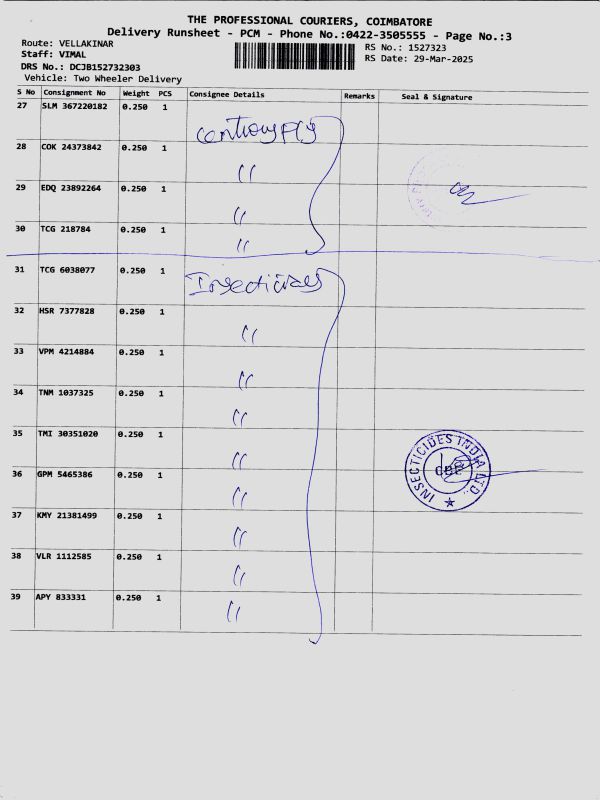 THE PROFESSIONAL COURIERS, COIMBATORE
Delivery Runsheet - PCM - Phone No.:0422-3505555 - Page No.:3
Route: VELLAKINAR
Staff: VIMAL
DRS No.: DCJB152732303
Vehicle: Two Wheeler Delivery
RS No.: 1527323
RS Date: 29-Mar-2025
S No Consignment No Weight PCS Consignee Details Remarks Seal & Signature
27 SLM 367220182 0.250 1
28 COK 24373842 0.250 1 "
29 EDQ 23892264 0.250 1 "
30 TCG 218784 0.250 1 "
31 TCG 6038077 0.250 1 Insecticides
32 HSR 7377828 0.250 1 "
33 VPM 4214884 0.250 1 "
34 TNM 1037325 0.250 1 "
35 TMI 30351020 0.250 1 "
36 GPM 5465386 0.250 1 "
37 KMY 21381499 0.250 1 "
38 VLR 1112585 0.250 1 "
39 APY 833331 0.250 1 "
INSECTICIDES INDIA LTD.
CBE